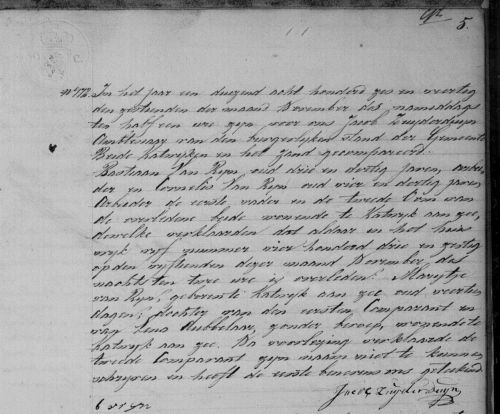 5.
N° 172. In het jaar een duizend acht honderd zes en veertig
den zestienden der maand November des namiddags
ten half een ure zyn voor ons Jacob Tuyderduyn
Ambtenaar van den burgerlyken stand der Gemeente
Beide Katwyken en het Zand gecompareerd.
Bastiaan van Ryn oud drie en dertig jaren, arbei=
der en Cornelis van Ryn oud vier en dertig jaren
Arbeider de eerste vader en de tweede Oom van
de overledene beide wonende te Katwyk aan zee,
dewelke verklaarden dat aldaar in het huis
wyk vyf nummer vier honderd drie en zestig
op den vyftienden dezer maand November, des
nachts ten twee ure is overleden: Marytje
van Ryn, geboren te Katwyk aan zee oud veertien
dagen; dochter van den eersten Comparant en
van Lena Aubbelaar, zonder beroep, wonende te
Katwyk aan zee. Na voorlezing verklaarde de
tweede Comparant zyn naam niet te kunnen
schryven en heeft de eerste benevens ons geteekend
Jacob Tuyderduyn
B v Ryn